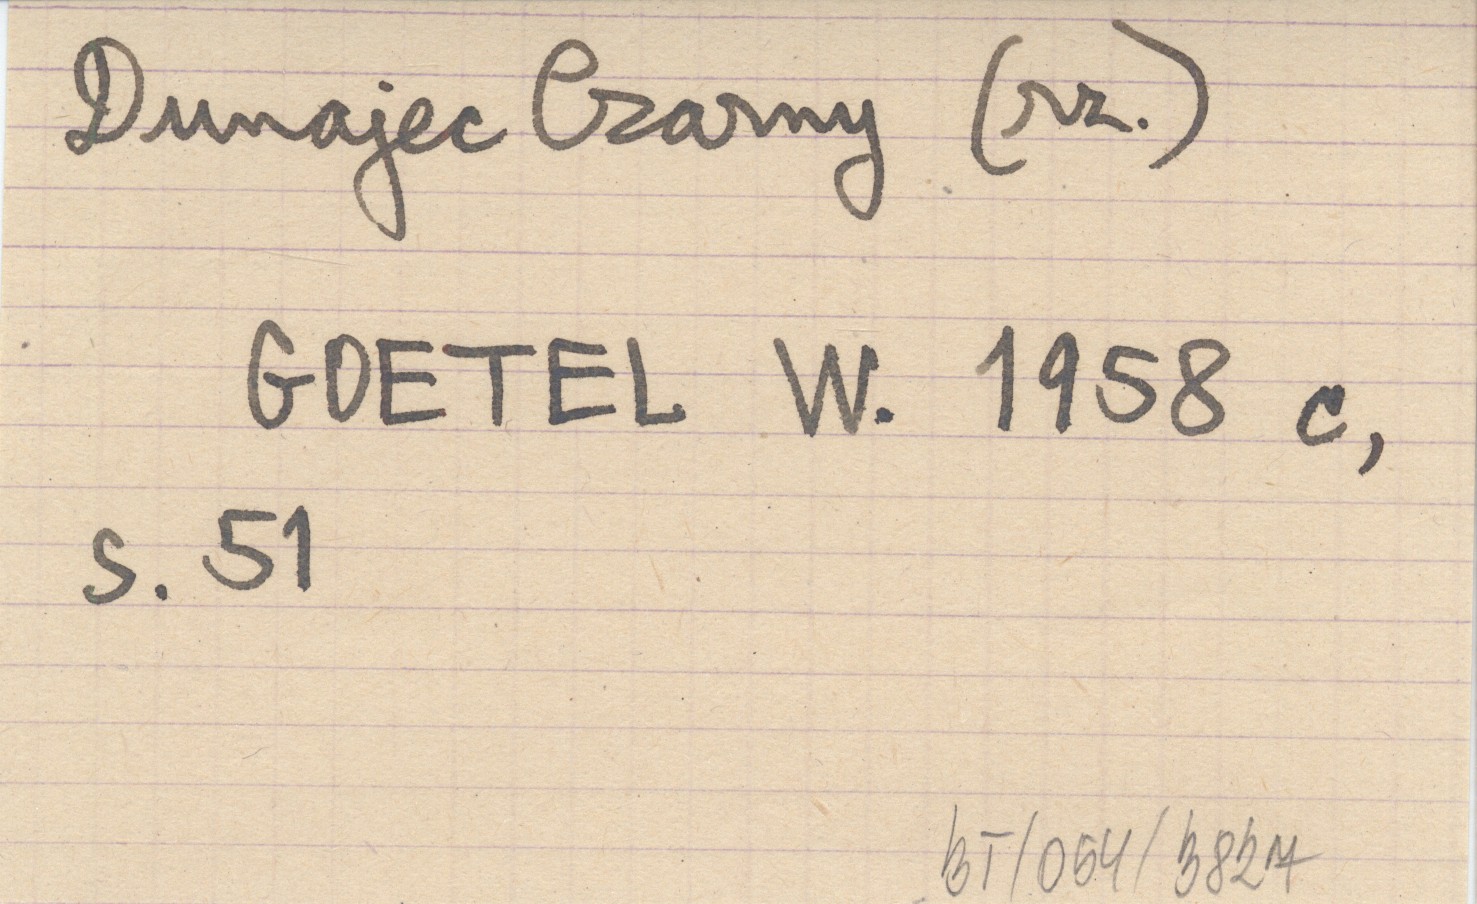 Dunajec Czarny (rz.)
GOETEL W. 1958 c,
s. 51
BT/054/3827